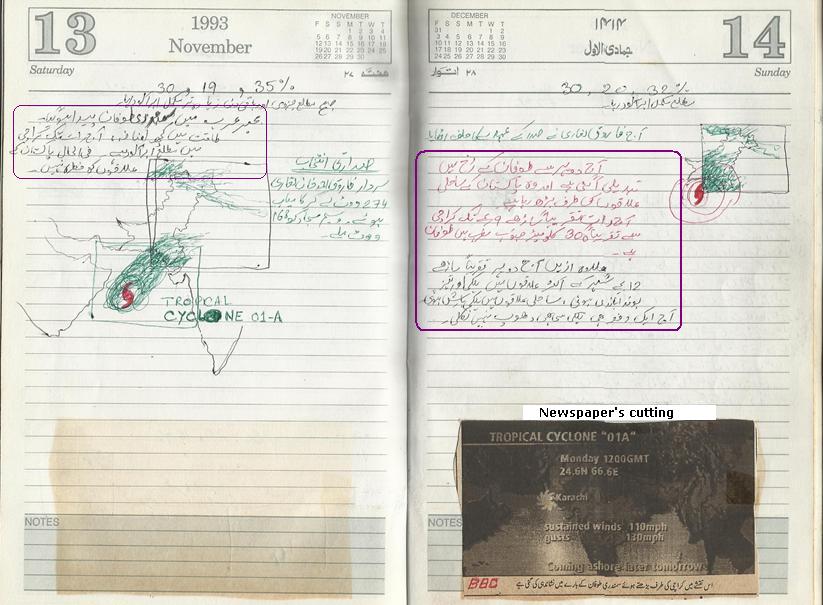 13
1993
November
NOVEMBER
F S S M T W T
1 2 3 4
5 6 7 8 9 10 11
12 13 14 15 16 17 18
19 20 21 22 23 24 25
26 27 28 29 30
Saturday
ہفتہ ۲۷
30, 19, 35%
بحیرہ عرب میں سمندری طوفان پیدا ہو گیا ہے۔
میں مطلع ابر آلود ہے فی الحال پاکستان کے
علاقوں کو خطرہ نہیں۔
صدارتی انتخاب
سردار فاروق احمد خان لغاری
274 ووٹ لے کر کامیاب
ہوئے۔ وسیم سجاد کو 168
ووٹ ملے۔
TROPICAL
CYCLONE 01-A
NOTES
DECEMBER
F S S M T W T
31 1 2
3 4 5 6 7 8 9
10 11 12 13 14 15 16
17 18 19 20 21 22 23
24 25 26 27 28 29 30
۱۴۱۴
جمادی الاول
14
۲۸ اتوار
Sunday
30, 20, 32%
آج فاروق لغاری نے صدر کے عہدے کا حلف اٹھایا
آج دوپہر سے طوفان کے رخ میں
تبدیلی آئی ہے اور وہ پاکستان کے ساحلی
علاقوں کی طرف بڑھ رہا ہے
آج رات تقریباً ساڑھے 9 بجے تک کراچی
سے تقریباً 300 کلومیٹر جنوب مغرب میں طوفان
ہے۔
علاوہ ازیں آج دوپہر تقریباً ساڑھے
12 بجے شہر کے اکثر علاقوں میں ہلکی اور تیز
بوندا باندی ہوئی، ساحلی علاقوں میں ہلکی بارش ہوئی
آج ایک دفعہ بھی ہلکی سی بھی دھوپ نہیں نکلی۔
Newspaper's cutting
TROPICAL CYCLONE "01A"
Monday 1200GMT
24.6N 66.6E
Karachi
sustained winds 110mph
gusts 130mph
Coming ashore later tomorrow
NOTES
BBC اس نقشے میں کراچی کی طرف بڑھتے ہوئے سمندری طوفان کے بارے میں نشاندہی کی گئی ہے